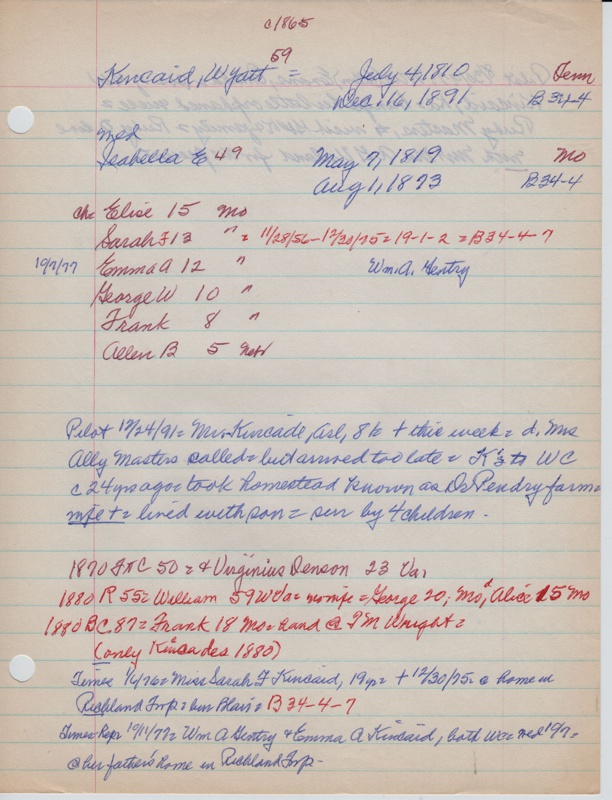 c/1865
59
Kincaid, Wyatt = July 4, 1810 Tenn
Dec. 16, 1891 B 34-4
Med
Isabella E 49 May 7, 1819 Mo
Aug 1, 1873 B34-4
ch= Elise 15 Mo
Sarah F 13 " = 11/28/56-12/30/75=19-1-2 = B34-4-7
10/7/77 Emma A 12 " Wm. A. Gentry
George W 10 "
Frank 8 "
Allen B 5 Nebr
Pilot 12/24/91= Mr. Kincade, Arl, 81 + this week = d. Mrs
Ally Masters called = but arrived too late = K's to WC
c 24 yrs ago = took homestead known as Dr Pendry farm=
wife + = lived with son = surv by 4 children.
1870 F&C 50 = & Virginius Denson 23 Va,
1880 R 55= William 59 W Va= no wife = George 20, Mo, Alice 15 Mo
1880 BC 87= Frank 18 Mo= hand @ T M Wright=
(only Kincades 1880)
Times 1/6/76= Miss Sarah F Kincaid, 19 yr= + 12/30/75= @ home in
Richland Twp= bur Blair= B34-4-7
Times-Repr 10/11/77= Wm A Gentry & Emma A Kincaid, both WC= med 10/7=
@ her father's home in Richland Twp-